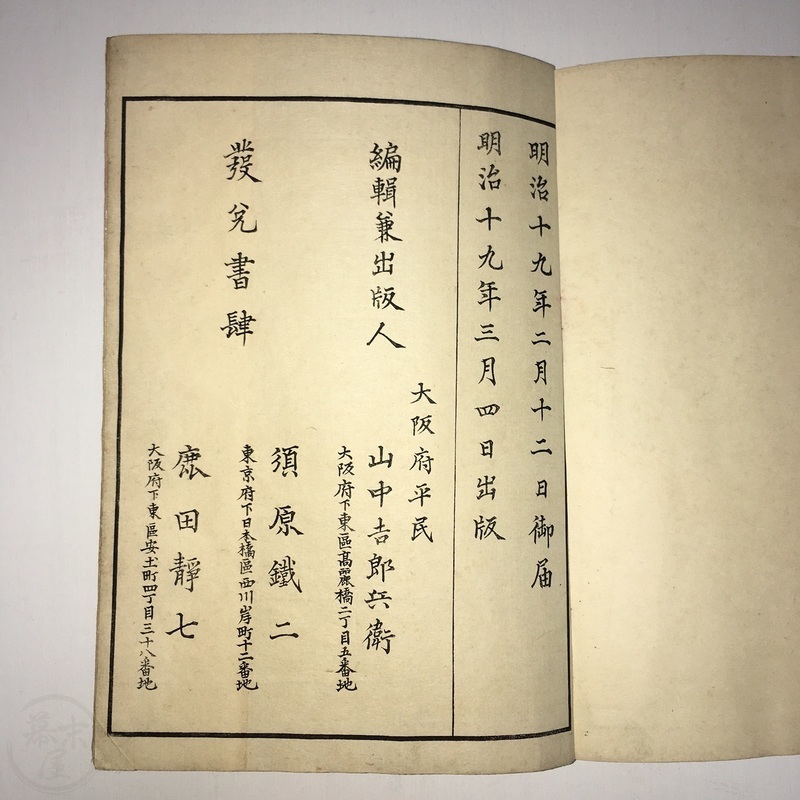 明治十九年二月十二日御届
明治十九年三月四日出版
編輯兼出版人
大阪府平民
山中吉郎兵衛
大阪府下東區髙麗橋二丁目五番地
發兌書肆
須原鐵二
東京府下日本橋區西川岸町十二番地
鹿田靜七
大阪府下東區安土町四丁目三十八番地
幕末屋